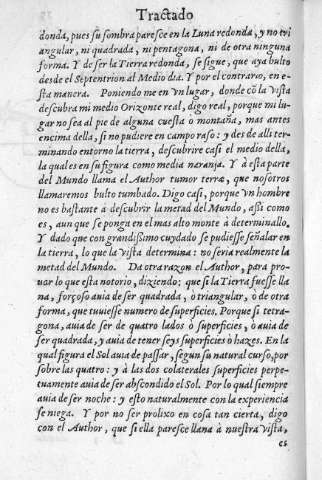 Tractado
donda, pues su sombra paresce en la Luna redonda, y no tri
angular, ni quadrada, ni pentagona, ni de otra ninguna
forma. Y de ser la Tierra redonda, se sigue, que aya bulto
desde el Septentrion al Medio dia. Y por el contrario, en e-
sta manera. Poniendo me en vn lugar, donde cō la vista
descubra mi medio Orizonte real, digo real, porque mi lu-
gar no sea al pie de alguna cuesta ò montaña, mas antes
encima della, si no pudiere en campo raso: y des de alli ter-
minando entorno la tierra, descubrire casi el medio della,
la qual es en su figura como media naranja. Y à esta parte
del Mundo llama el Author tumor terræ, que nosotros
llamaremos bulto tumbado. Digo casi, porque vn hombre
no es bastante à descubrir la metad del Mundo, assi como
es, aun que se ponga en el mas alto monte à determinallo.
Y dado que con grandissimo cuydado se pudiesse señalar en
la tierra, lo que la vista determina: no seria realmente la
metad del Mundo. Da otra razon el Author, para pro-
uar lo que esta notorio, diziendo: que si la Tierra fuesse lla
na, forçoso auia de ser quadrada, o triangular, ò de otra
forma, que tuuiesse numero de superficies. Porque si tetra-
gona, auia de ser de quatro lados ò superficies, ò auia de
ser quadrada, y auia de tener seys superficies ò hazes. En la
qual figura el Sol auia de passar, segun su natural curso, por
sobre las quatro: y à las dos colaterales superficies perpe-
tuamente auia de ser abscondido el Sol. Por lo qual siempre
auia de ser noche: y esto naturalmente con la experiencia
se niega. Y por no ser prolixo en cosa tan cierta, digo
con el Author, que si ella paresce llana à nuestra vista,
es